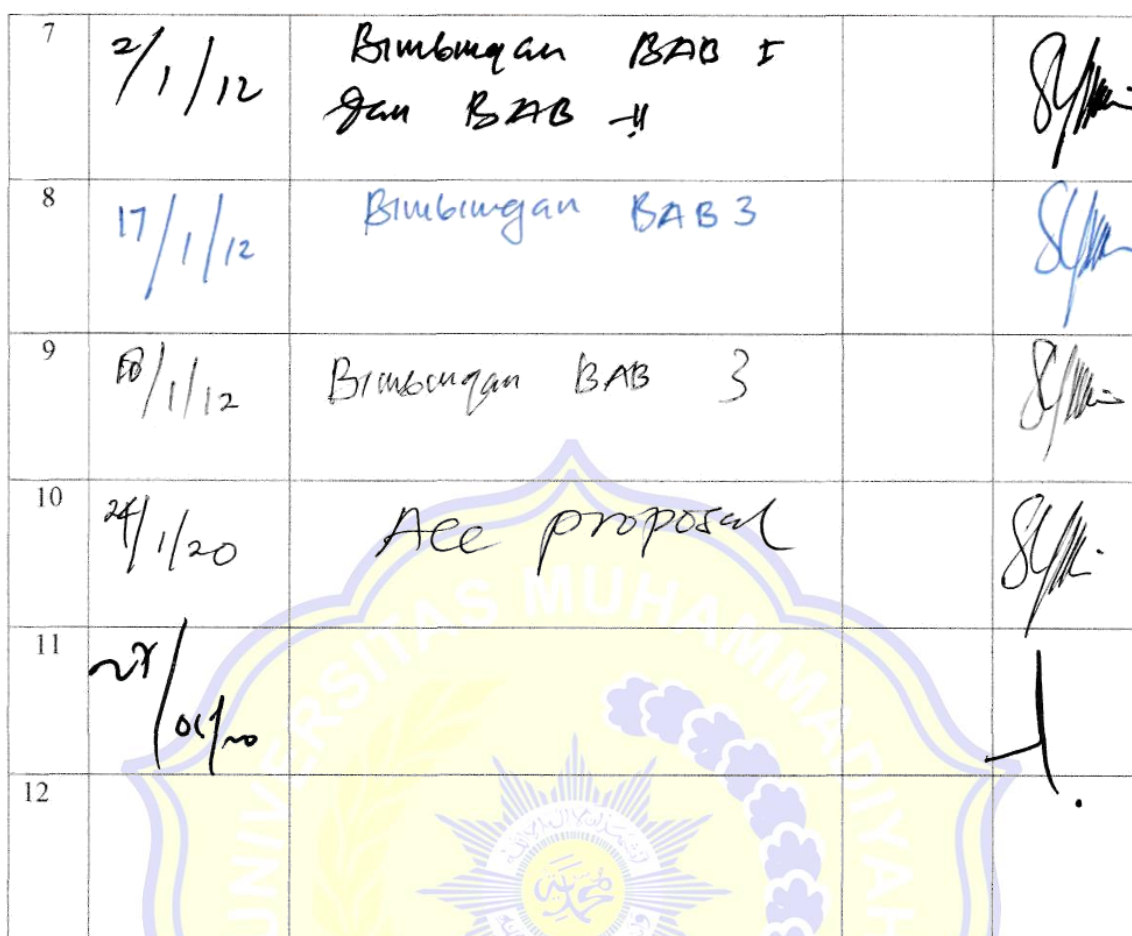 7 2/1/12 Bimbingan BAB I
dan BAB II
8 17/1/12 Bimbingan BAB 3
9 /1/12 Bimbingan BAB 3
10 24/1/20 Acc proposal
11
12
UNIVERSITAS MUHAMMADIYAH